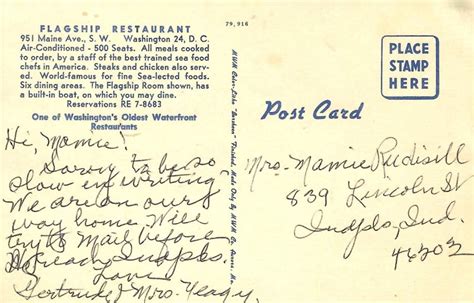 FLAGSHIP RESTAURANT
951 Maine Ave., S. W. Washington 24, D. C.
Air-Conditioned - 500 Seats. All meals cooked
to order, by a staff of the best trained sea food
chefs in America. Steaks and chicken also serv-
ed. World-famous for fine Sea-lected foods.
Six dining areas. The Flagship Room shown, has
a built-in boat, on which you may dine.
Reservations RE 7-8683
One of Washington's Oldest Waterfront
Restaurants
Hi, Mamie!
Sorry to be so
slow in writing
We are on our
way home. Will
try to Mail before
reach Indpls.
Love
Gertrude & Mrs. Yeagy
79,916
Post Card
PLACE
STAMP
HERE
Mrs. Mamie Rudisill
839 Lincoln St
Indpls, Ind.
46203